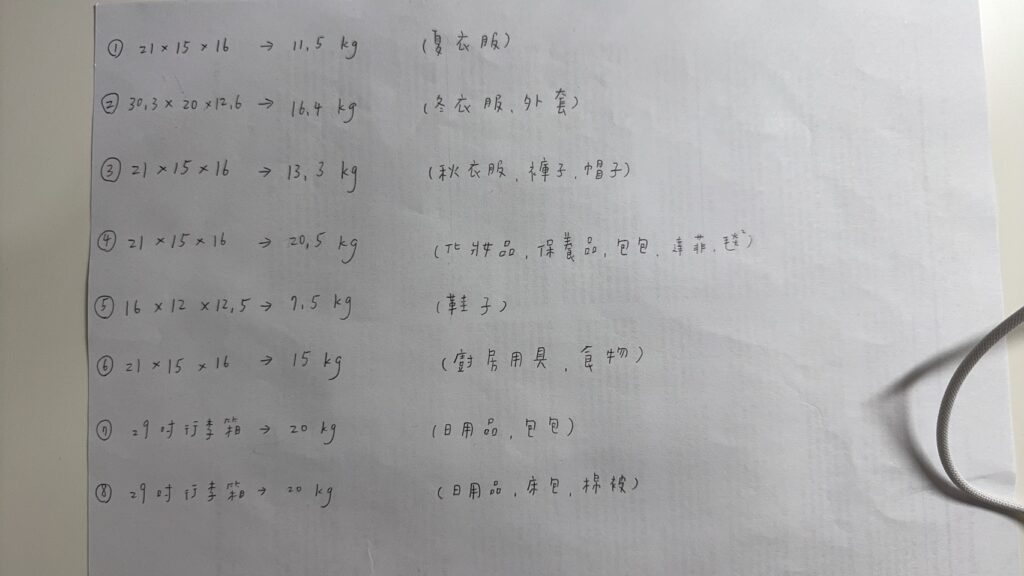 ① 21 × 15 × 16 → 11.5 kg (夏衣服)
② 30.3 × 20 × 12.6 → 16.4 kg (冬衣服、外套)
③ 21 × 15 × 16 → 13.3 kg (秋衣服、褲子、帽子)
④ 21 × 15 × 16 → 20.5 kg (化妝品、保養品、包包、達菲、毯²)
⑤ 16 × 12 × 12.5 → 7.5 kg (鞋子)
⑥ 21 × 15 × 16 → 15 kg (廚房用具、食物)
⑦ 29吋行李箱 → 20 kg (日用品、包包)
⑧ 29吋行李箱 → 20 kg (日用品、床包、棉被)